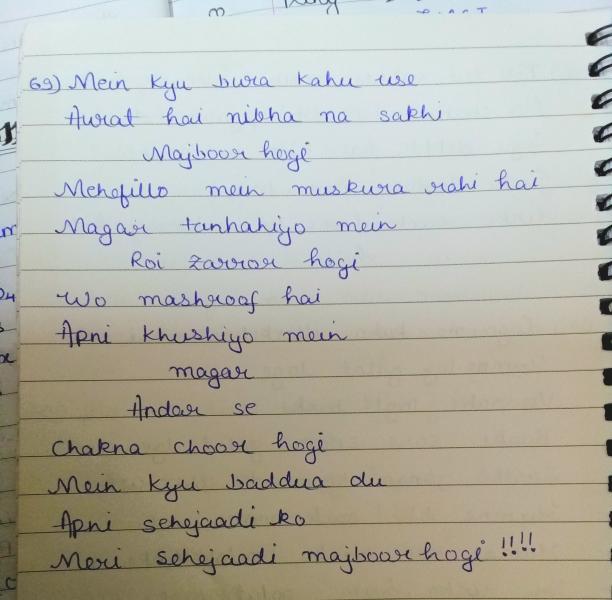 69) Mein kyu bura kahu use
Aurat hai nibha na sakhi
Majboor hogi
Mehefillo mein muskura rahi hai
Magar tanhahiyo mein
Roi zarror hogi
Wo mashroof hai
Apni khushiyo mein
magar
Andar se
Chakna choor hogi
Mein kyu baddua du
Apni sehejaadi ko
Meri sehejaadi majboor hogi !!!!